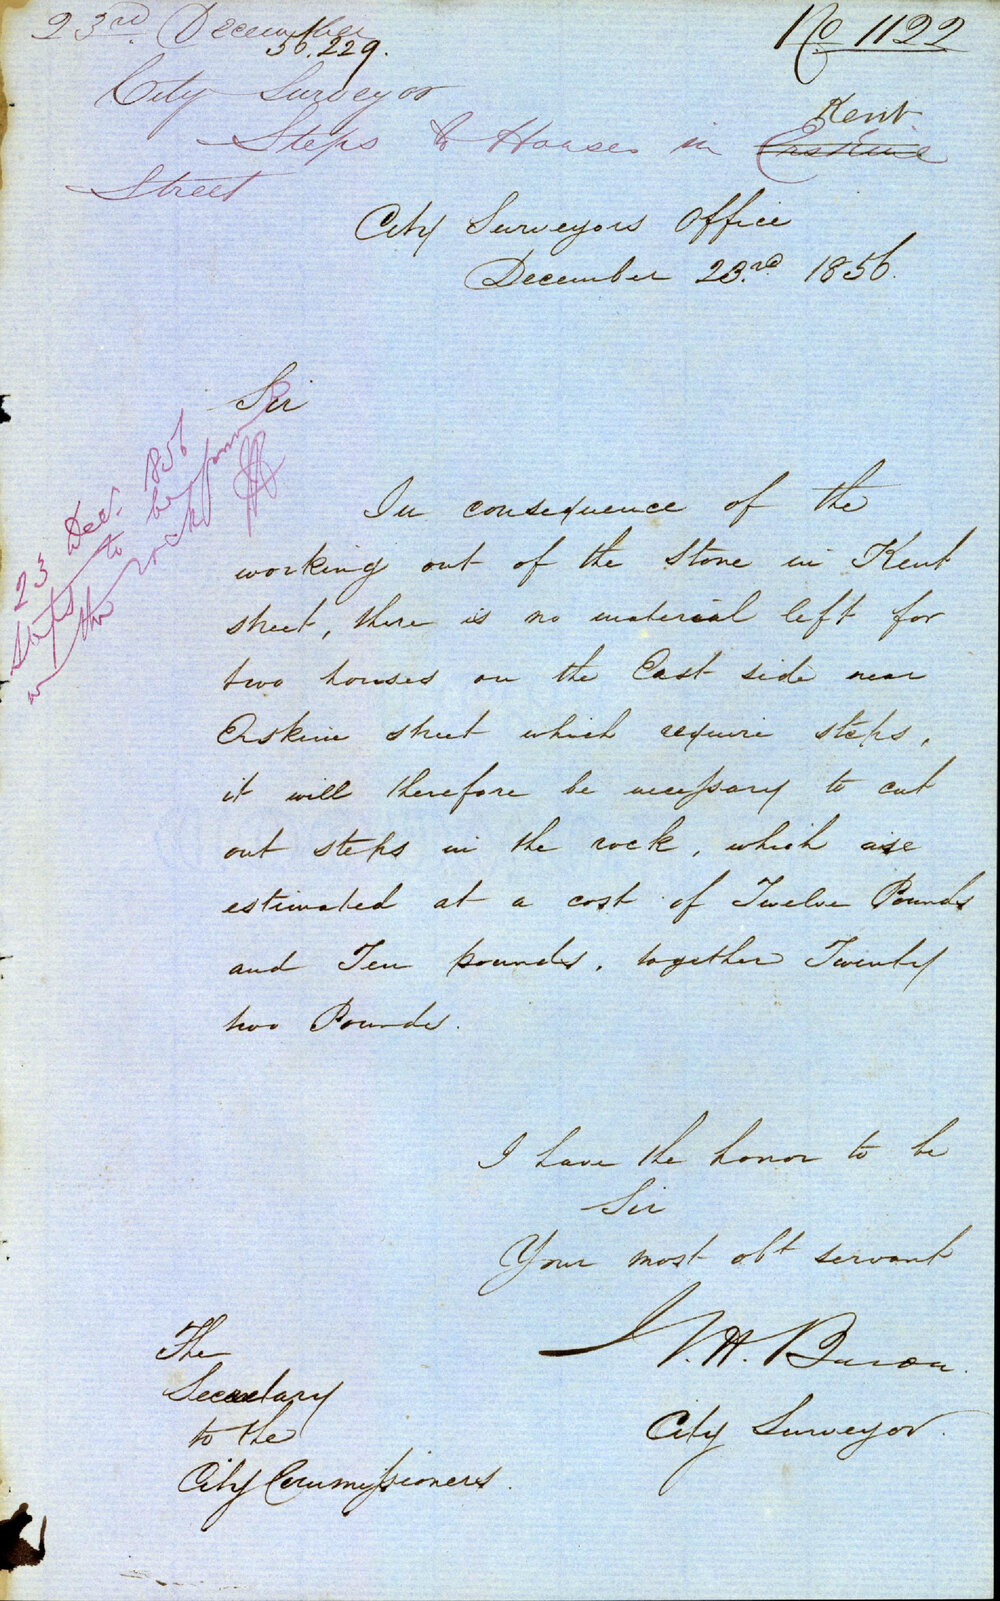 23rd December
56.229.
No 1122
City Surveyor
Steps to Houses in Erskine Kent
Street
City Surveyors Office
December 23rd 1856.
Sir
23 Dec. 1856
Steps to be formed
in the rock
In consequence of the
working out of the stone in Kent
street, there is no material left for
two houses on the East side near
Erskine street which require steps,
it will therefore be necessary to cut
out steps in the rock, which are
estimated at a cost of Twelve Pounds
and Ten pounds, together Twenty
two Pounds.
I have the honor to be
Sir
Your most obt servant
City Surveyor.
The
Secretary
to the
City Commissioners.